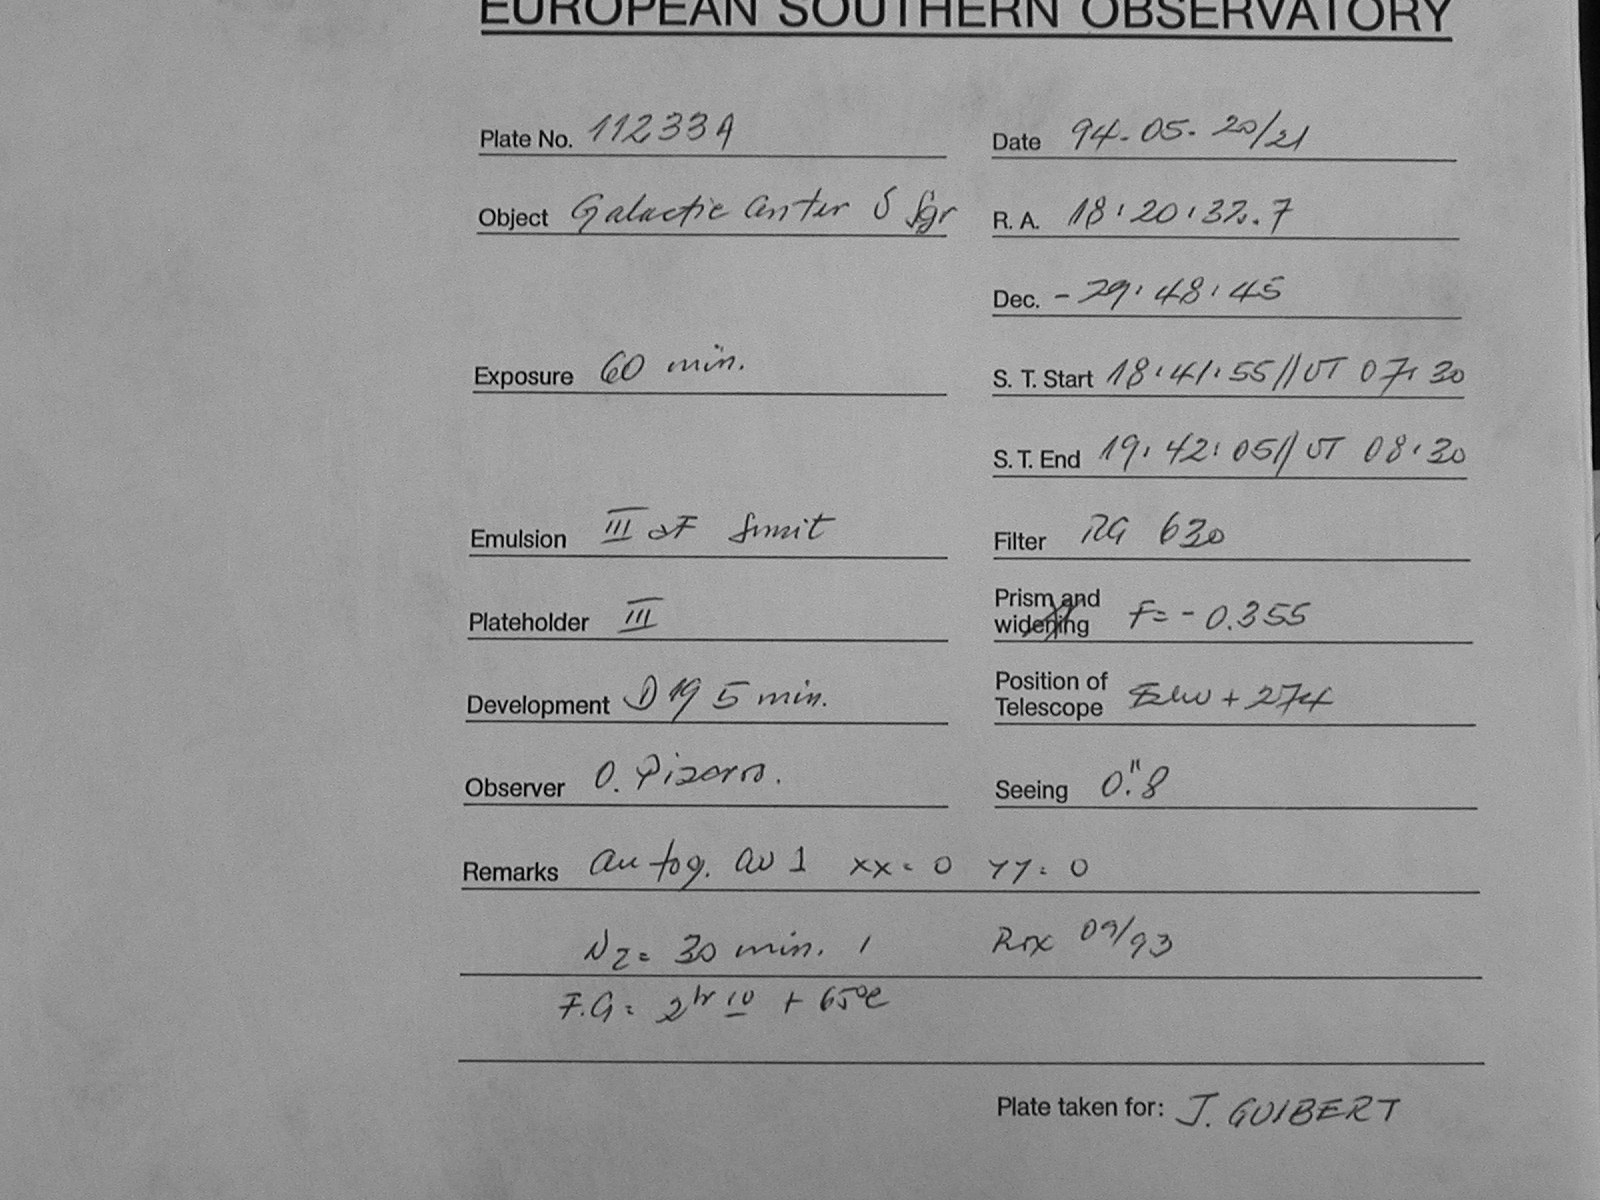 EUROPEAN SOUTHERN OBSERVATORY
Plate No. 11233A
Date 94-05-20/21
Object Galactic Center δ Sgr
R. A. 18:20:32.7
Dec. -29:48:45
Exposure 60 min.
S. T. Start 18:41:55//UT 07:30
S. T. End 19:42:05//UT 08:30
Emulsion III aF
Filter RG 630
Prism and widening F= -0.355
Plateholder III
Development D19 5 min.
Position of Telescope +274
Observer O. Pizarro.
Seeing 0."8
Remarks autog. av 1 xx=0 yy=0
N2= 30 min. 09/93
F.G= 2hr 10 + 65°C
Plate taken for: J. GUIBERT